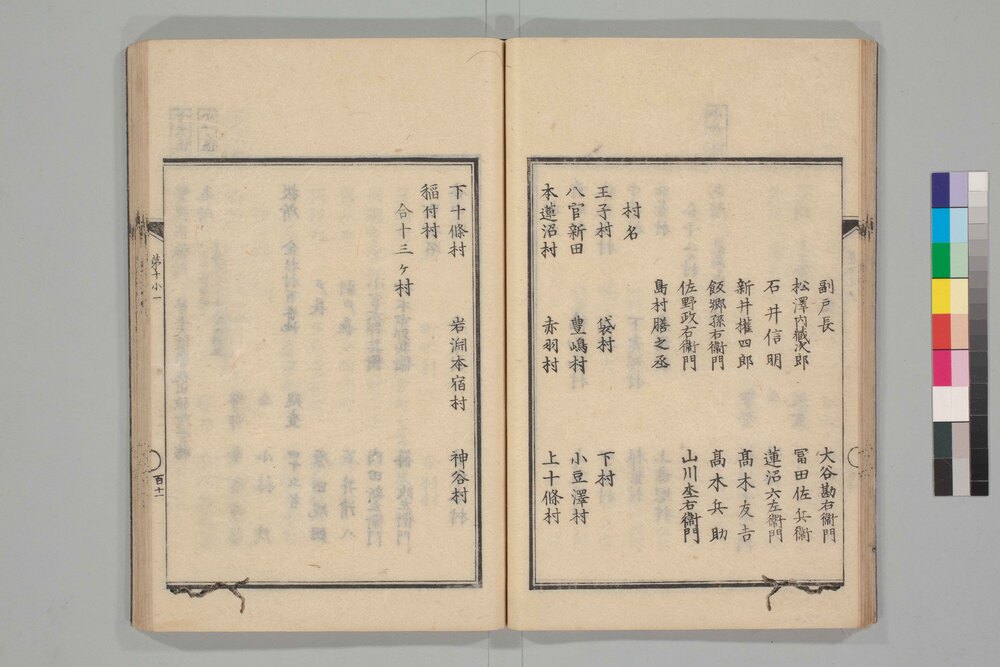 副戸長
大谷勘右衞門
松澤内藏次郎
冨田佐兵衞
石井信明
蓮沼六左衞門
新井權四郎
髙木友吉
飯郷孫右衞門
髙木兵助
佐野政右衞門
山川杢右衞門
島村膳之丞
村名
王子村
袋村
下村
八官新田
豊嶋村
小豆澤村
本蓮沼村
赤羽村
上十條村
下十條村
岩淵本宿村
神谷村
稲付村
合十三ヶ村
第十小一
百十一